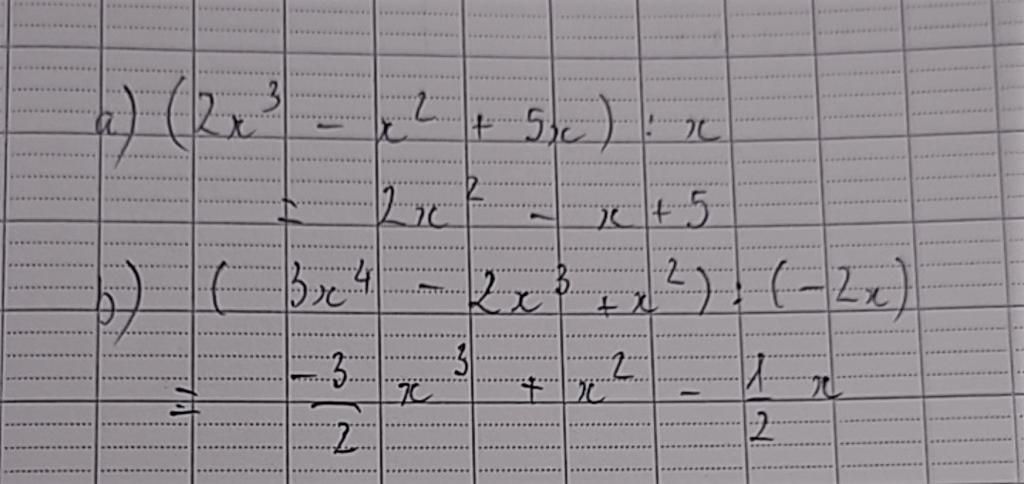 a) (2x³ - x² + 5x) : x
= 2x² - x + 5
b) (3x⁴ - 2x³ + x²) : (-2x)
= -3/2 x³ + x² - 1/2 x